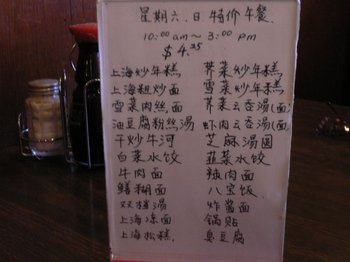 星期六.日 特价午餐
10:00 am ~ 3:00 pm
$4.95
上海炒年糕 荠菜炒年糕
上海粗炒面 雪菜炒年糕
雪菜肉丝面 荠菜云吞汤(面)
油豆腐粉丝汤 虾肉云吞汤(面)
干炒牛河 芝麻汤圆
白菜水饺 韮菜水饺
牛肉面 辣肉面
鳝糊面 八宝饭
双档湯 炸醬面
上海冻面 锅贴
上海松糕 臭豆腐